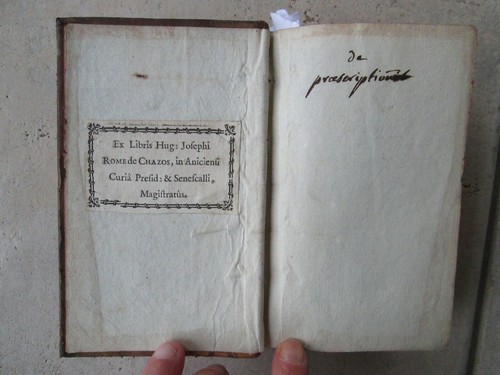 Ex Libris Hug: Joſephi
ROME de CHAZOS, in Anicienſi
Curiâ Preſid: & Seneſcalli,
Magiſtratûs.
de
præscriptionib